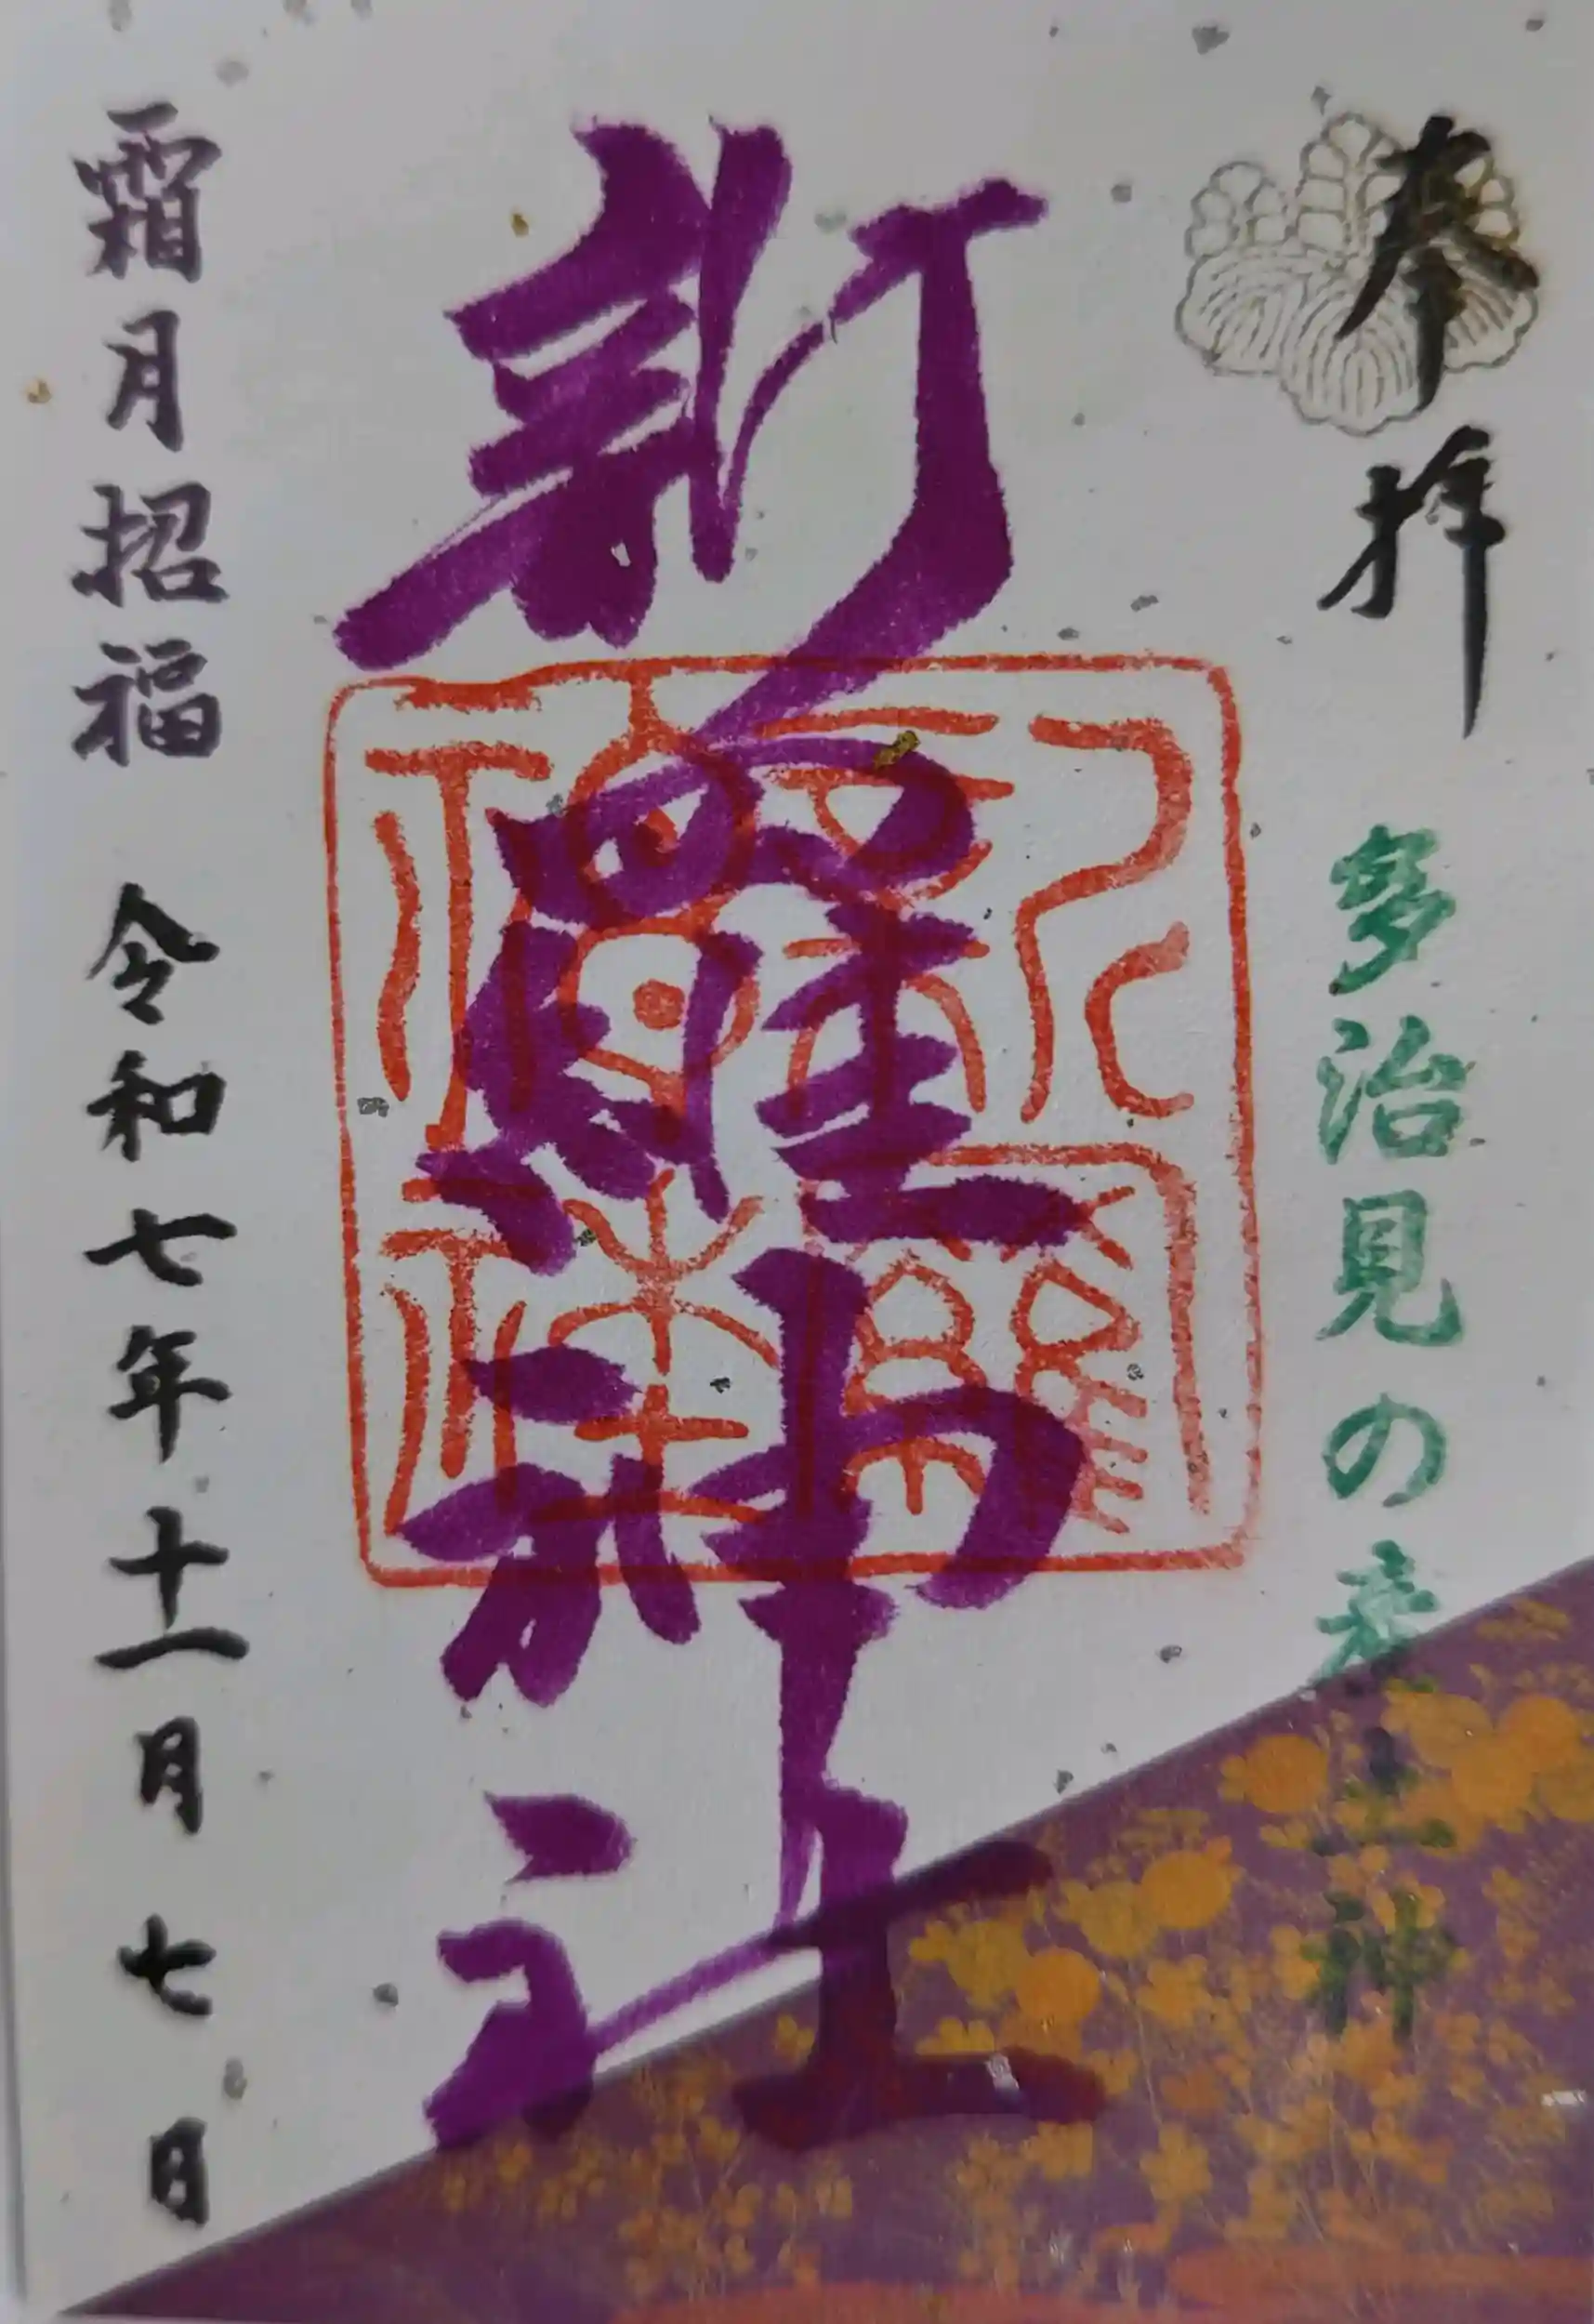 奉拝
多治見の産土神
新羅神社
霜月招福
令和七年十一月七日